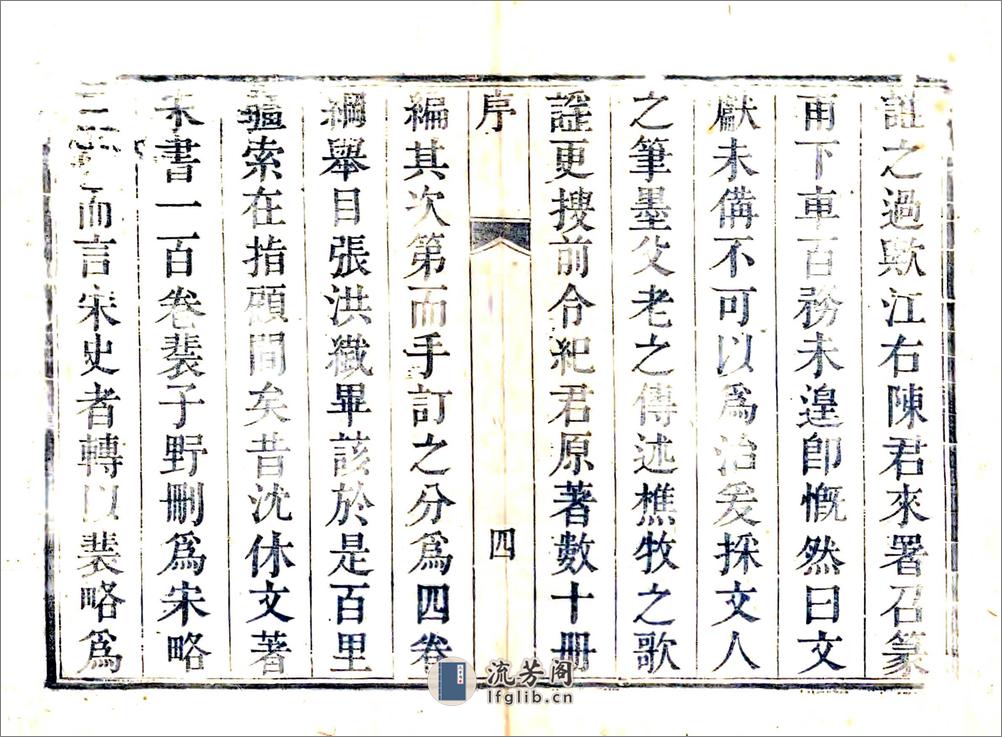 誰之過歟江右陳君來署召篆
甫下車百務未遑卽慨然曰文
獻未備不可以爲治爰採文人
之筆墨父老之傳述樵牧之歌
謡更搜前令紀君原著數十冊
序 四
編其次第而手訂之分爲四卷
綱舉目張洪纖畢該於是百里
疆索在指顧間矣昔沈休文著
宋書一百卷裴子野刪爲宋略
而言宋史者轉以裴略爲
流芳阁
lfglib.cn